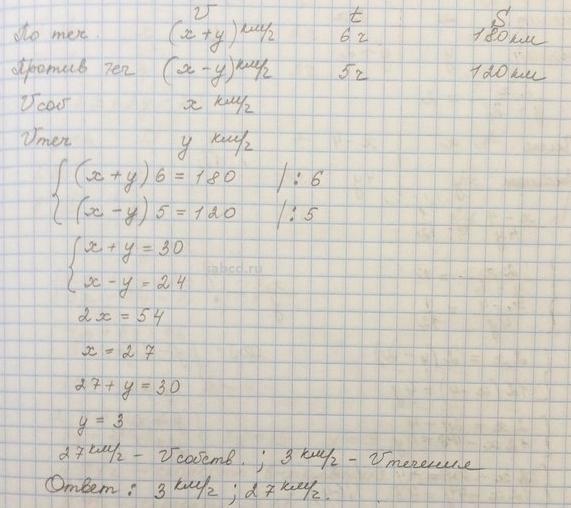 V t S
По теч. (x+y) км/ч 6 ч 180 км
Против теч (x-y) км/ч 5 ч 120 км
Vсоб x км/ч
Vтеч y км/ч
(x+y) 6 = 180 | : 6
(x-y) 5 = 120 | : 5
x + y = 30
x - y = 24
sabcd.ru
2x = 54
x = 27
27 + y = 30
y = 3
27 км/ч - Vсобств. ; 3 км/ч - Vтечения
Ответ : 3 км/ч ; 27 км/ч.